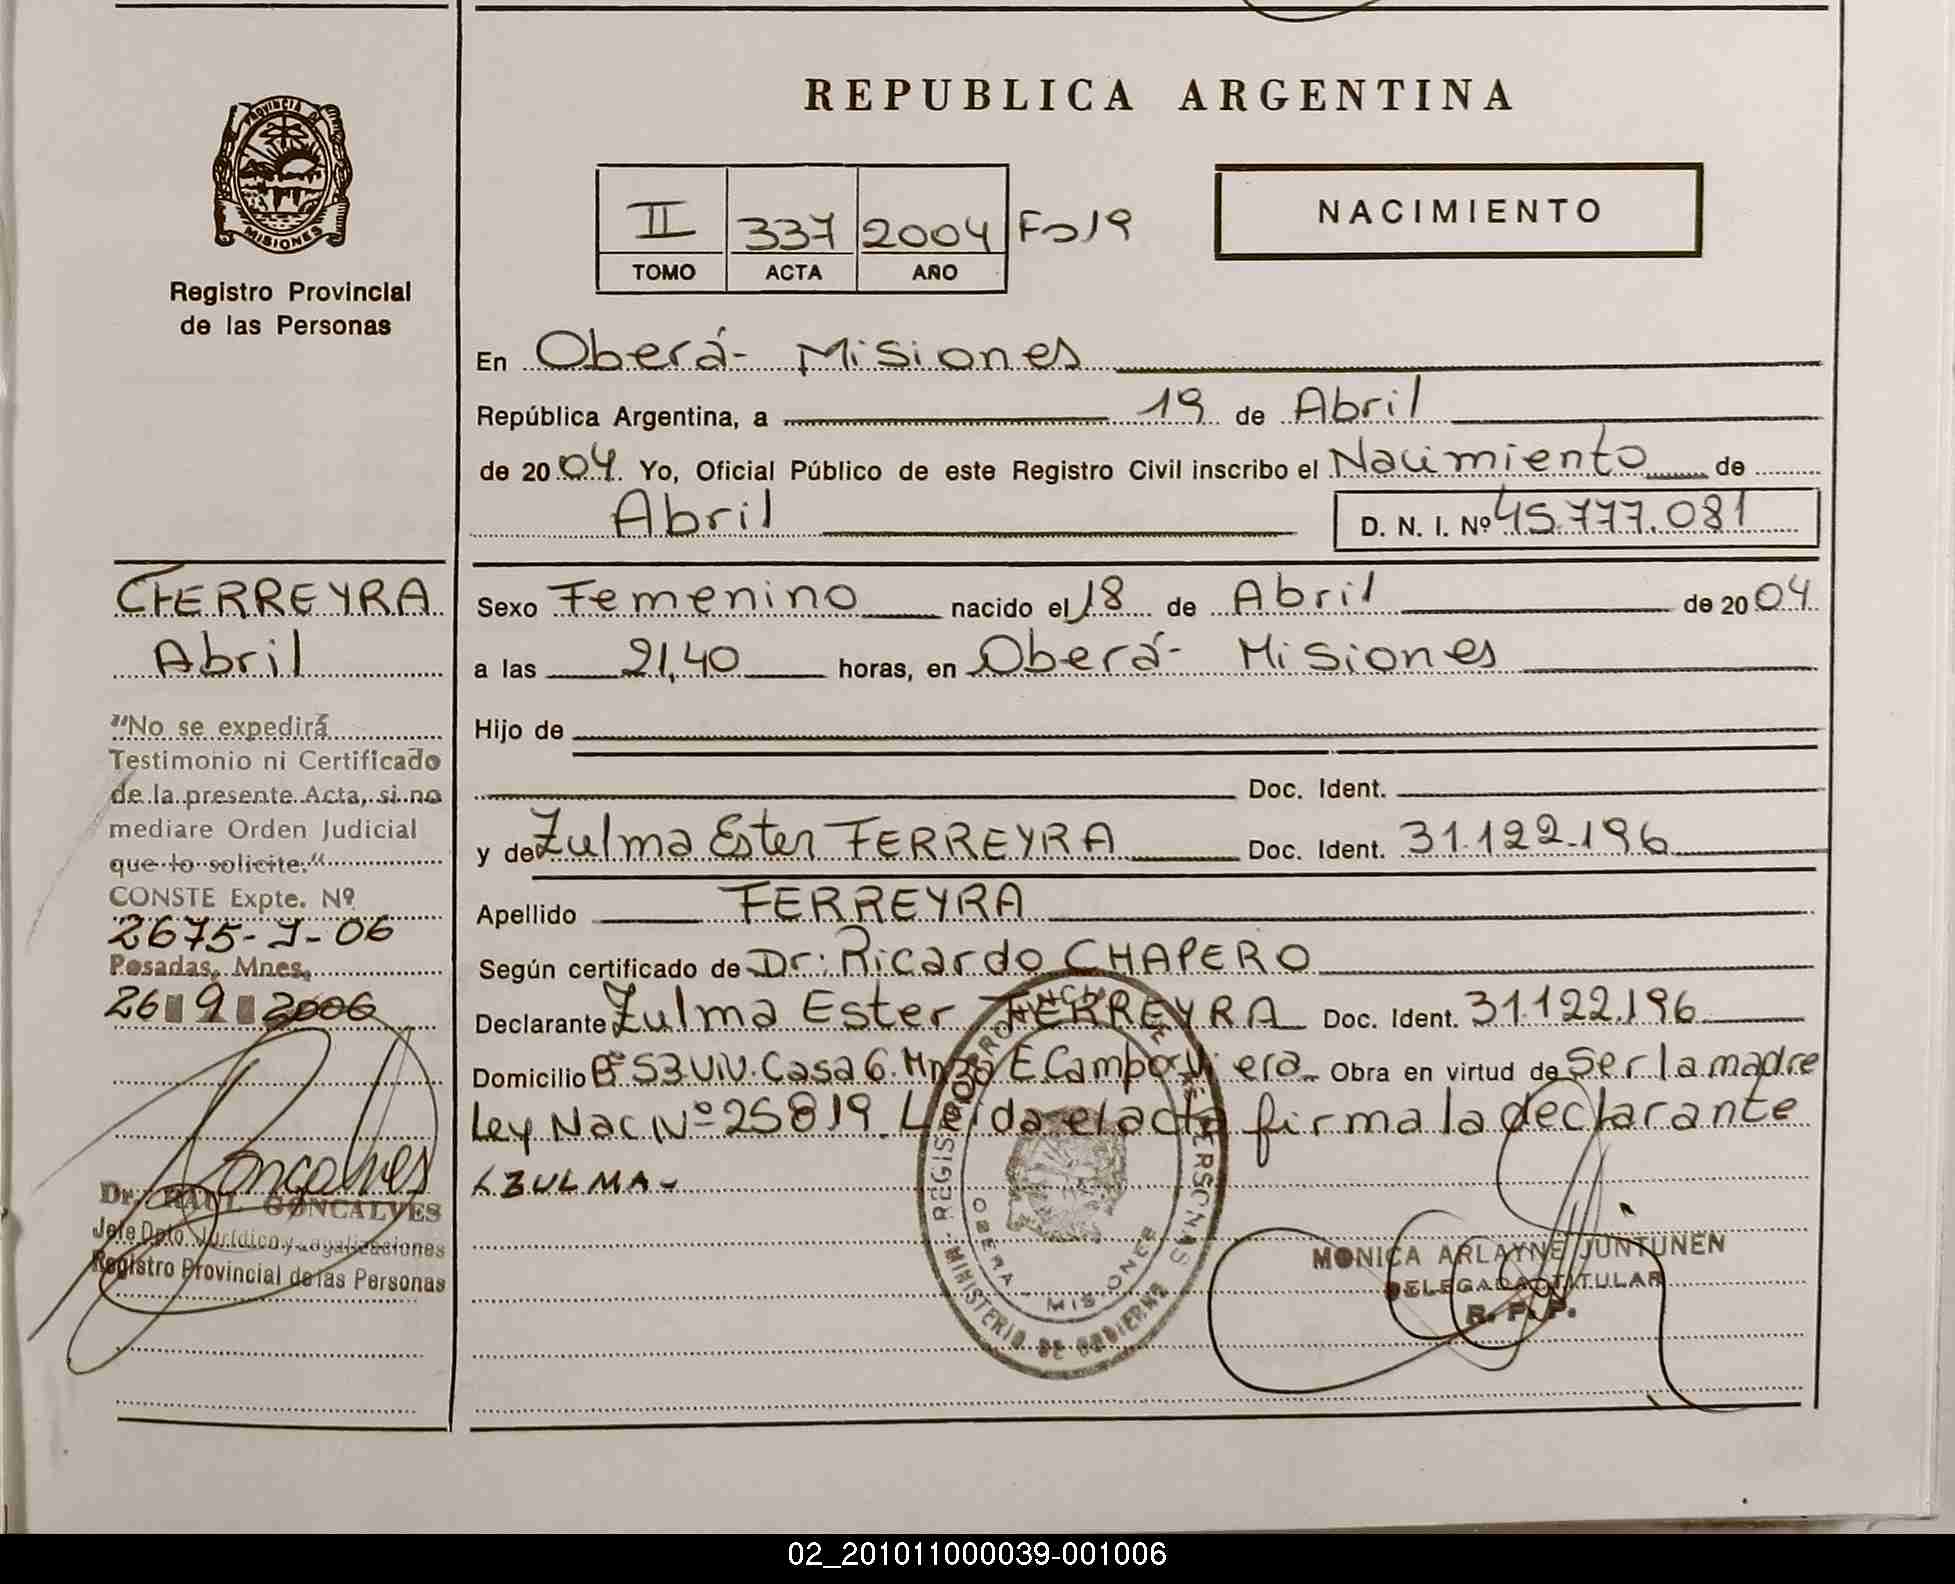 REPUBLICA ARGENTINA
PROVINCIA DE
MISIONES
Registro Provincial
de las Personas
II 337 2004 Fo 19
TOMO ACTA AÑO
NACIMIENTO
En Oberá- Misiones
República Argentina, a 19 de Abril
de 2004. Yo, Oficial Público de este Registro Civil inscribo el Nacimiento de
Abril D. N. I. Nº 45.777.081
FERREYRA
Abril
"No se expedirá
Testimonio ni Certificado
de la presente Acta, si no
mediare Orden Judicial
que lo solicite."
CONSTE Expte. Nº
2675-J-06
Posadas, Mnes,
26 9 2006
Goncalves
Dr. RAUL GONCALVES
Jefe Dpto. Jurídico y Legalizaciones
Registro Provincial de las Personas
Sexo Femenino nacido el 18 de Abril de 2004
a las 21,40 horas, en Oberá- Misiones
Hijo de
Doc. Ident.
y de Zulma Ester FERREYRA Doc. Ident. 31.122.196
Apellido FERREYRA
Según certificado de Dr: Ricardo CHAPERO
Declarante Zulma Ester FERREYRA Doc. Ident. 31.122.196
Domicilio Bº 53 Viv. Casa 6. Mnza E. Campo Viera Obra en virtud de Ser la madre
Ley Nac Nº 25819. Leída el acta firma la declarante
ZULMA-
REGISTRO PROVINCIAL DE LAS PERSONAS
MINISTERIO DE GOBIERNO
OBERA - MISIONES
MONICA ARLAYNE JUNTUNEN
DELEGADA TITULAR
R. P. P.
02_201011000039-001006